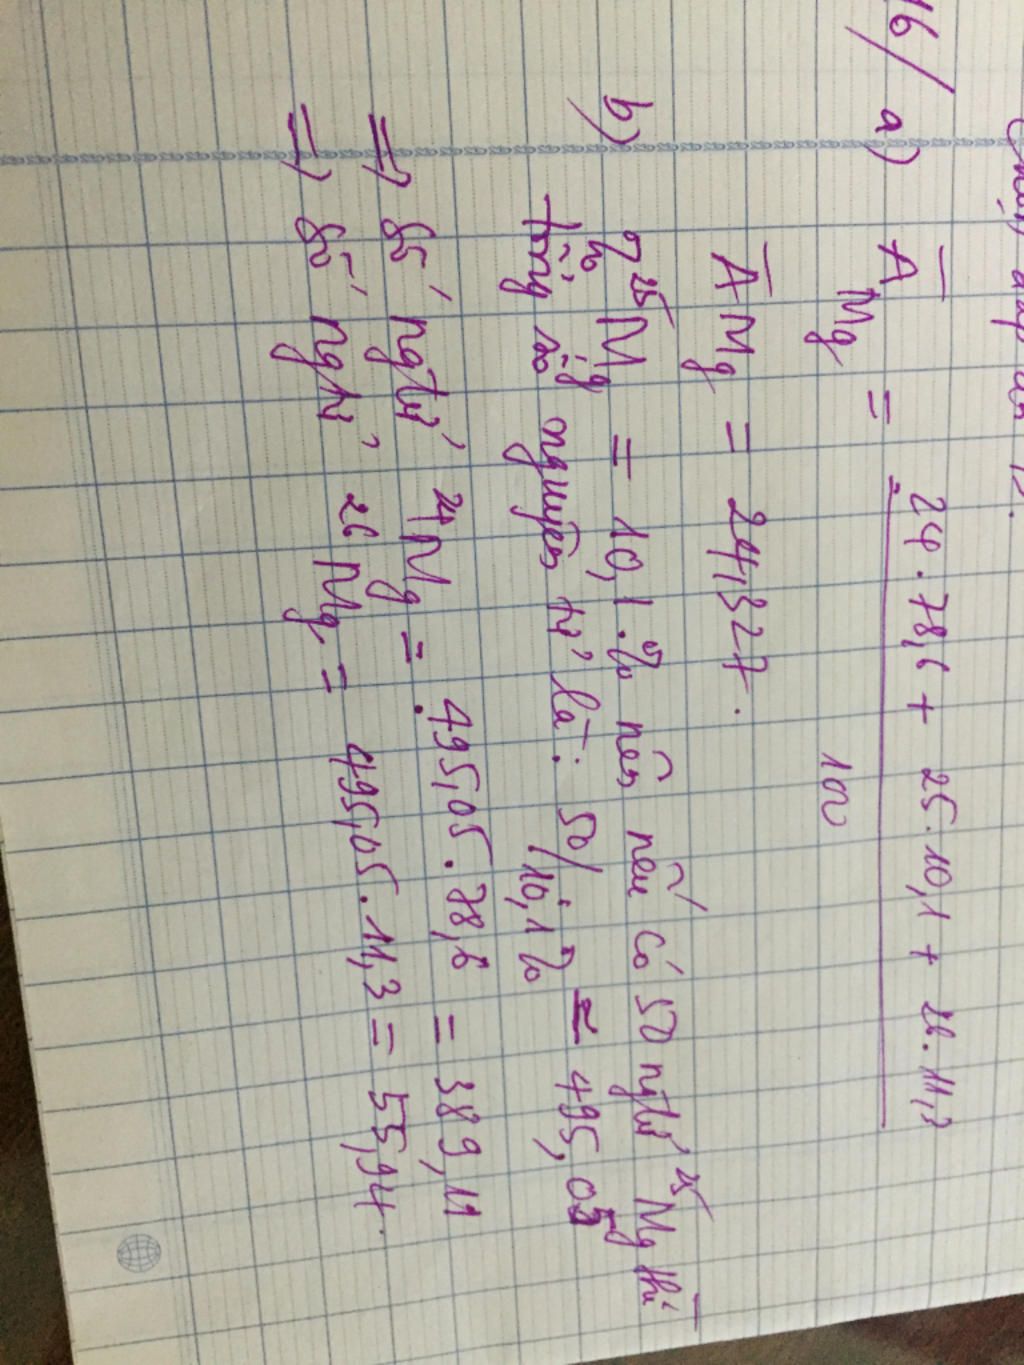 Chọn đáp án
16/ a) A̅ Mg = 24 . 78,6 + 25 . 10,1 + 26 . 11,3
100
A̅ Mg = 24,327 .
b) % ²⁵Mg = 10,1 % nên nếu có 50 ngtử ²⁵Mg thì
tổng số nguyên tử là : 50/10,1% ≈ 495,05
=> số ngtử ²⁴Mg = 495,05 . 78,6 = 389,11
=> số ngtử ²⁶Mg = 495,05 . 11,3 = 55,94 .